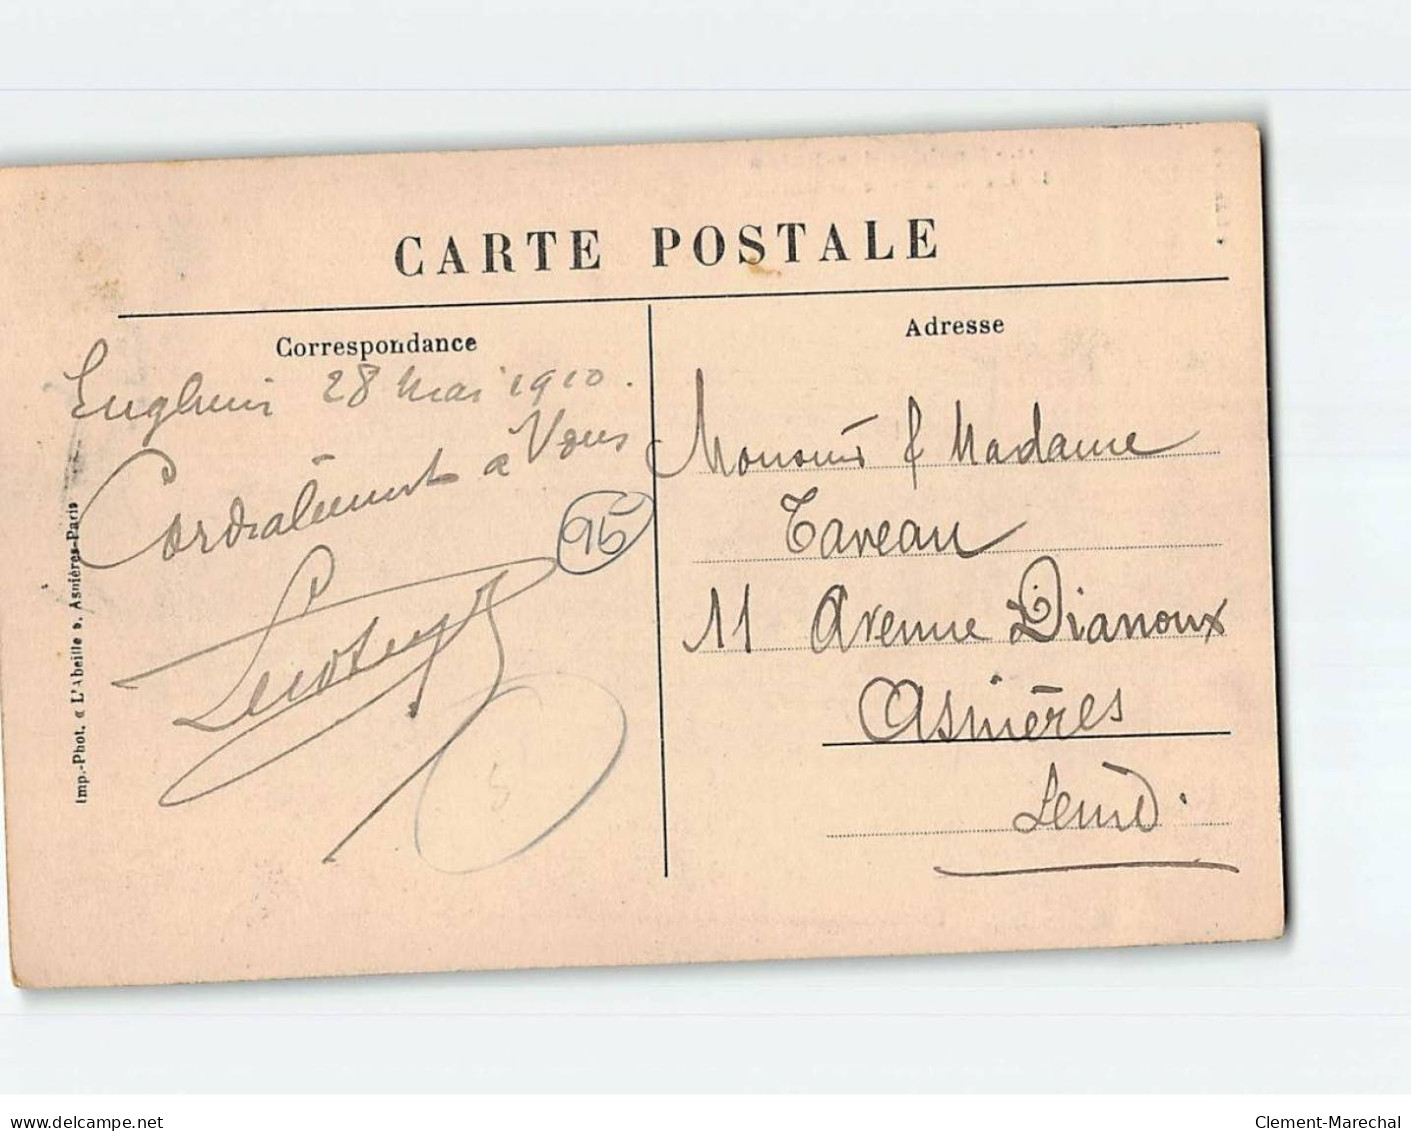 CARTE POSTALE
Correspondance
Adresse
Enghien 28 Mai 1910.
Cordialement à Vous
95
Monsieur & Madame
Taveau
11 Avenue Dianoux
Asnières
Seine
Imp.-Phot. « L'Abeille ». Asnières-Paris
www.delcampe.net
Clement-Marechal